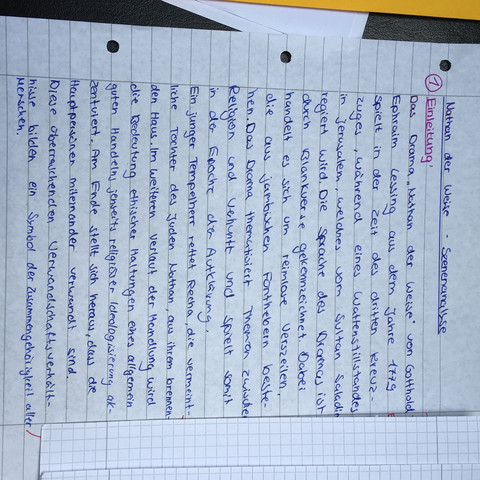 Nathan der Weise - Szenenanalyse
① Einleitung
Das Drama „Nathan der Weise" von Gotthold
Ephraim Lessing aus dem Jahre 1779
spielt in der Zeit des dritten Kreuz-
zuges, während eines Waffenstillstandes
in Jerusalem, welches vom Sultan Saladin
regiert wird. Die Sprache des Dramas ist
durch Blankverse gekennzeichnet. Dabei
handelt es sich um reimlose Verszeilen,
die aus jambischen Fünfhebern beste-
hen. Das Drama thematisiert Themen zwischen
Religion und Vernunft und spielt somit
in der Epoche der Aufklärung.
Ein junger Tempelherr rettet Recha, die vermeint-
liche Tochter des Juden Nathan, aus ihrem brennen-
den Haus. Im weiteren Verlauf der Handlung wird
die Bedeutung ethischer Haltungen eines allgemein
guten Handeln, jenseits religiöser Ideologisierung ak-
zentuiert. Am Ende stellt sich heraus, dass die
Hauptpersonen miteinander verwandt sind.
Diese überraschenden Verwandschaftsverhält-
nisse bilden ein Symbol der Zusammengehörigkeit aller
Menschen.